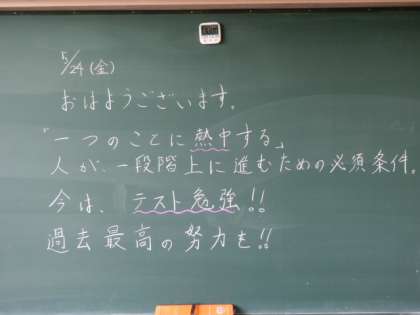 5/24(金)
おはようございます。
「一つのことに熱中する」
人が、一段階上に進むための必須条件。
今は、テスト勉強!!
過去最高の努力を!!